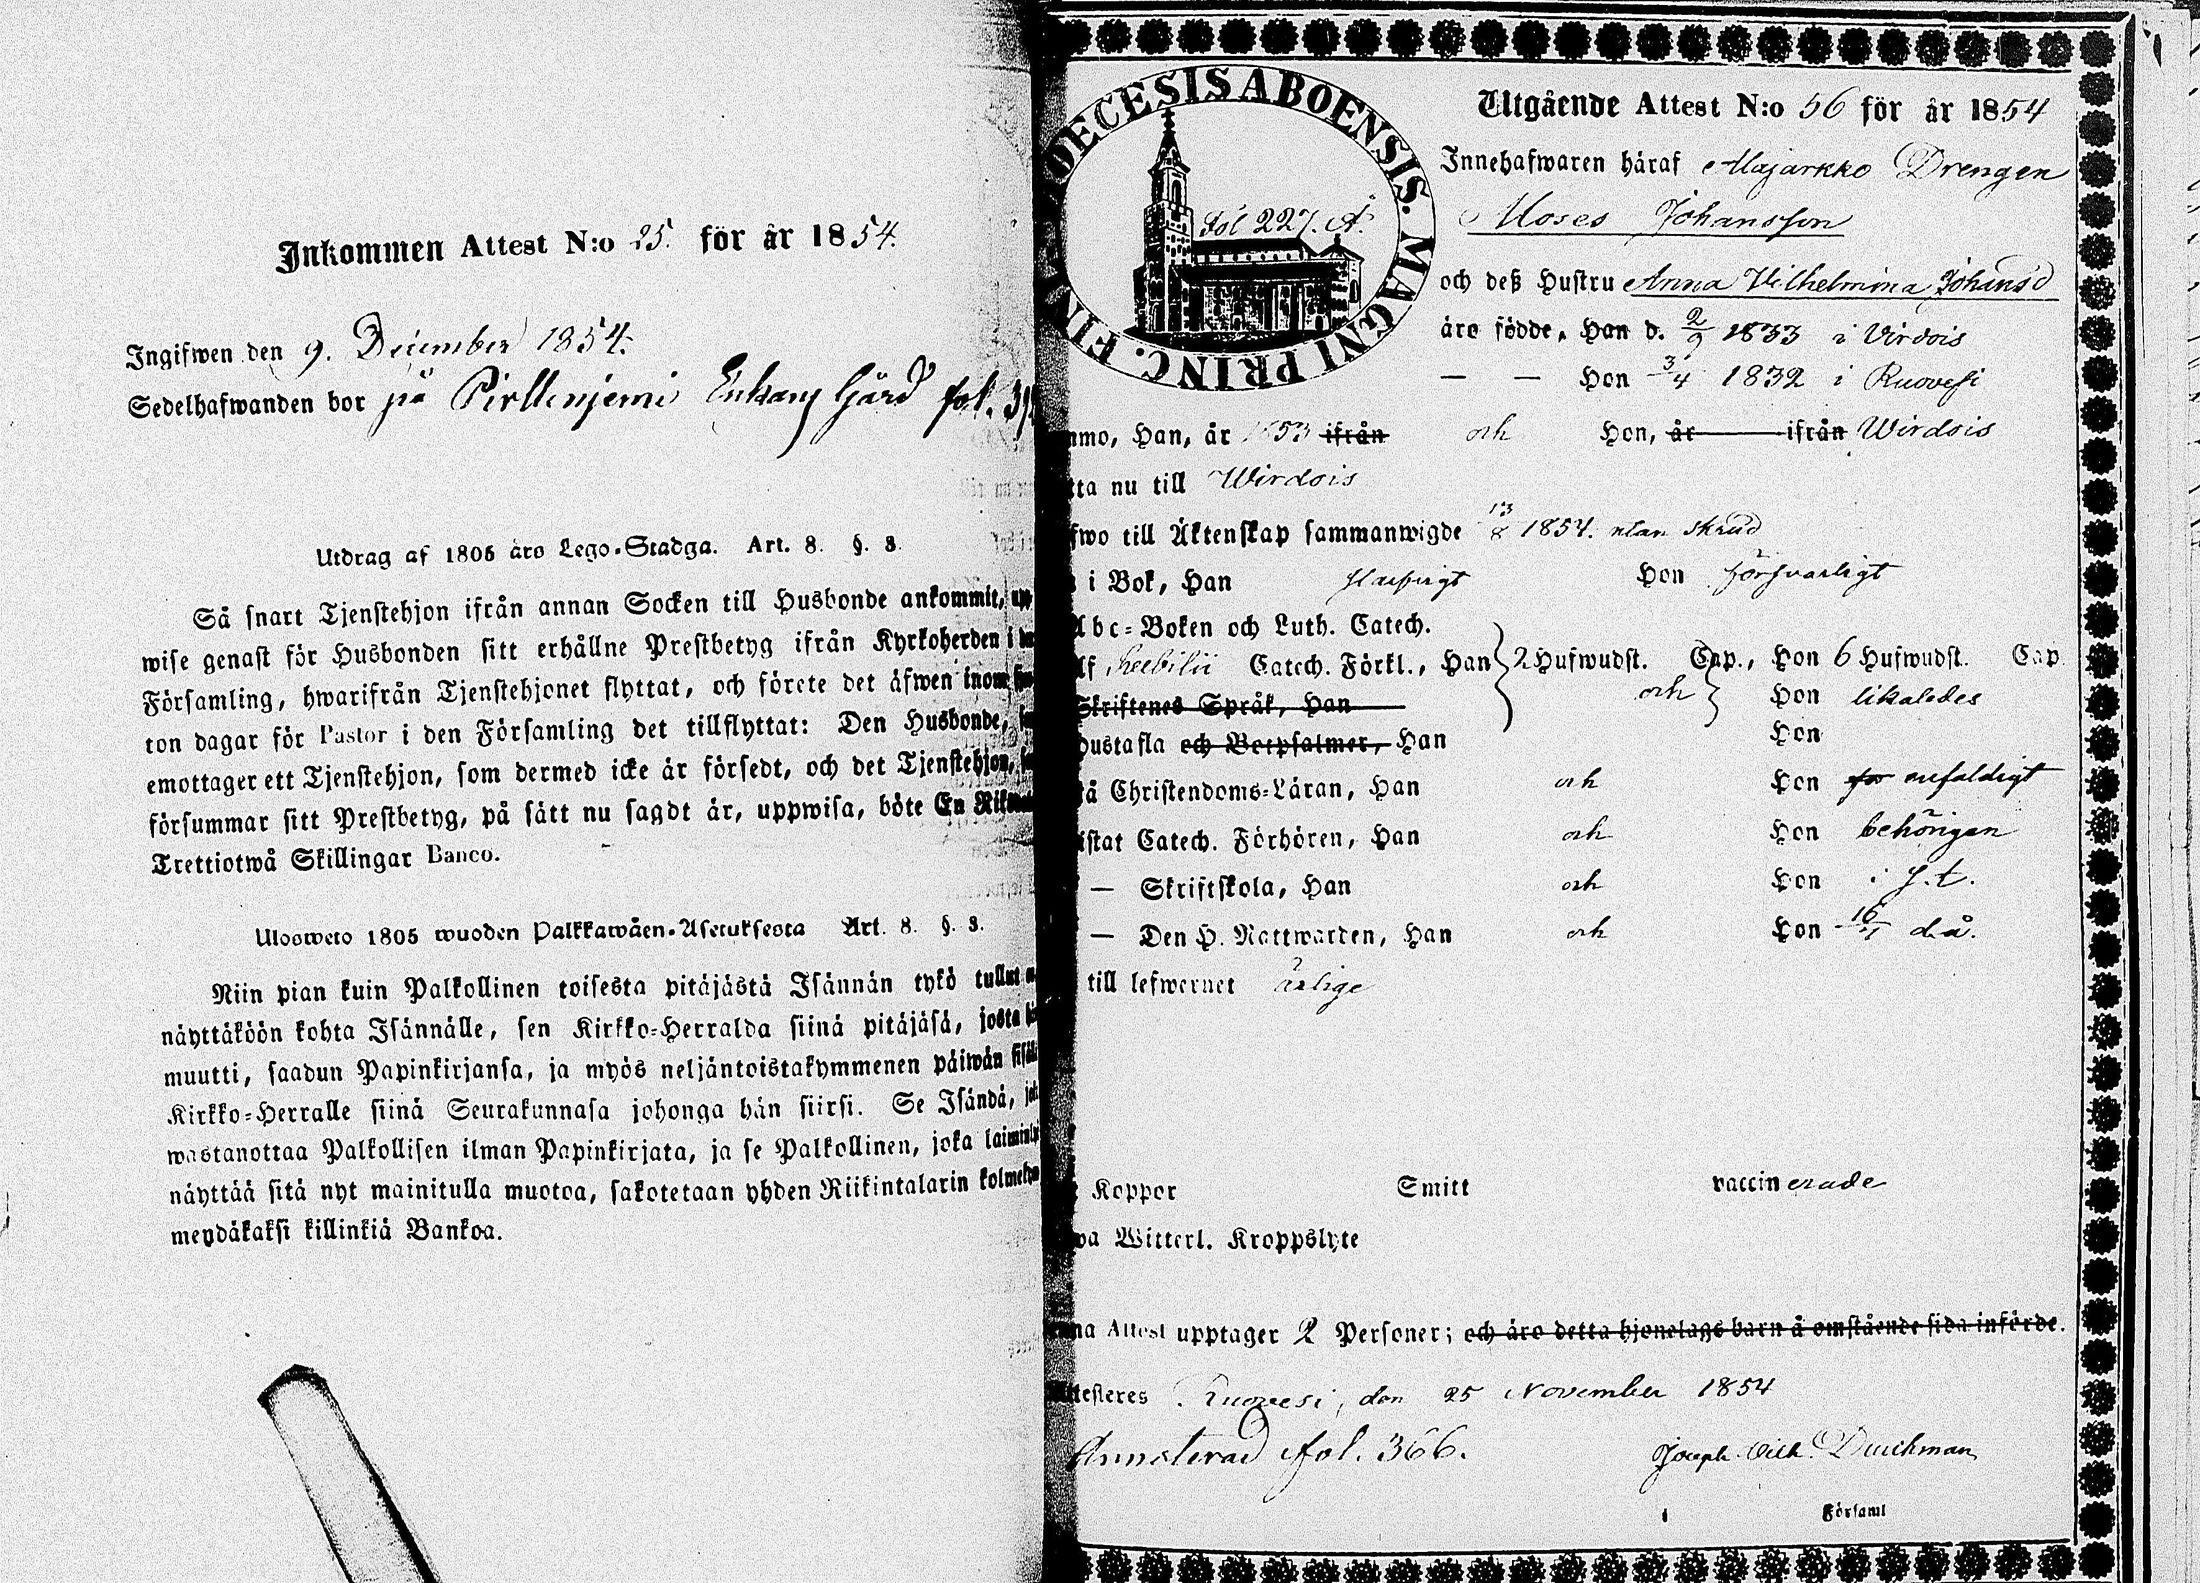 Inkommen Attest N:o 25. för år 1854.
Ingifwen den 9. December 1854.
Sedelhafwanden bor på gård fol.
Utdrag af 1805 års Lego-Stadga. Art. 8. §. 3.
Så snart Tjenstehjon ifrån annan Socken till Husbonde ankommit,
wise genast för Husbonden sitt erhållne Prestbetyg ifrån Kyrkoherden i
Församling, hwarifrån Tjenstehjonet flyttat, och förete det äfwen inom
ton dagar för Pastor i den Församling det tillflyttat: Den Husbonde,
emottager ett Tjenstehjon, som dermed icke är försedt, och det Tjenstehjon,
försummar sitt Prestbetyg, på sätt nu sagdt är, uppwisa, böte En
Trettiotwå Skillingar Banco.
Ulosweto 1805 wuoden Palkkawäen-Asetuksesta Art. 8. §. 3.
Niin pian kuin Palkollinen toisesta pitäjästä Isännän tykö tullut
näyttäköön kohta Isännälle, sen Kirkko-Herralda siinä pitäjäsä, josta
muutti, saadun Papinkirjansa, ja myös neljäntoistakymmenen päiwän
Kirkko-Herralle siinä Seurakunnasa johonga hän siirsi. Se Isändä,
wastanottaa Palkollisen ilman Papinkirjata, ja se Palkollinen, joka
näyttää sitä nyt mainitulla muotoa, sakotetaan yhden Riikintalarin
meydäkaksi killinkiä Bankoa.
DECESIS ABOENSIS. MAGNI PRINC. FIN
Fol 227. A.
Utgående Attest N:o 56 för år 1854
Innehafwaren häraf Majarkko Drengen
Moses Johansson
och deß Hustru Anna Vilhelmina Johansd
äro födde, Han d. 2/9 1833 i Virdois
— — Hon 3/4 1832 i Ruovesi
Han, år 1853 ifrån och Hon, år ifrån Wirdois
nu till Wirdois
till Äktenskap sammanwigde 13/8 1854. utan skrud
i Bok, Han Hon försvarligt
Abc-Boken och Luth. Catech.
Catech. Förkl., Han 2 Hufwudst. Cap., Hon 6 Hufwudst. Cap.
Skriftenes Språk, Han och Hon likaledes
Hustafla och Botpsalmer, Han Hon
Christendoms-Läran, Han och Hon enfaldigt
Catech. Förhören, Han och Hon behörigen
— Skriftskola, Han och Hon
— Den H. Nattwarden, Han och Hon då.
till lefwernet ärlige
Koppor Smitt vaccinerade
Witterl. Kroppslyte
Attest upptager 2 Personer; och äro detta hjonelags barn å omstående sida införde.
Attesteres Ruovesi, den 25 November 1854
Annoterad fol. 366. Joseph Vilh. Durchman
Församl